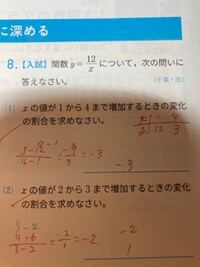 に深める
8.【入試】関数 y = 12/x について, 次の問いに
答えなさい。
(千葉・改)
(1) xの値が1から4まで増加するときの変化
の割合を求めなさい。
x 1 4
y 12 3
3-12/4-1 = -9/3 = -3
-3
(2) xの値が2から3まで増加するときの変化
の割合を求めなさい。
4-6/3-2 = -2/1 = -2
-2
1